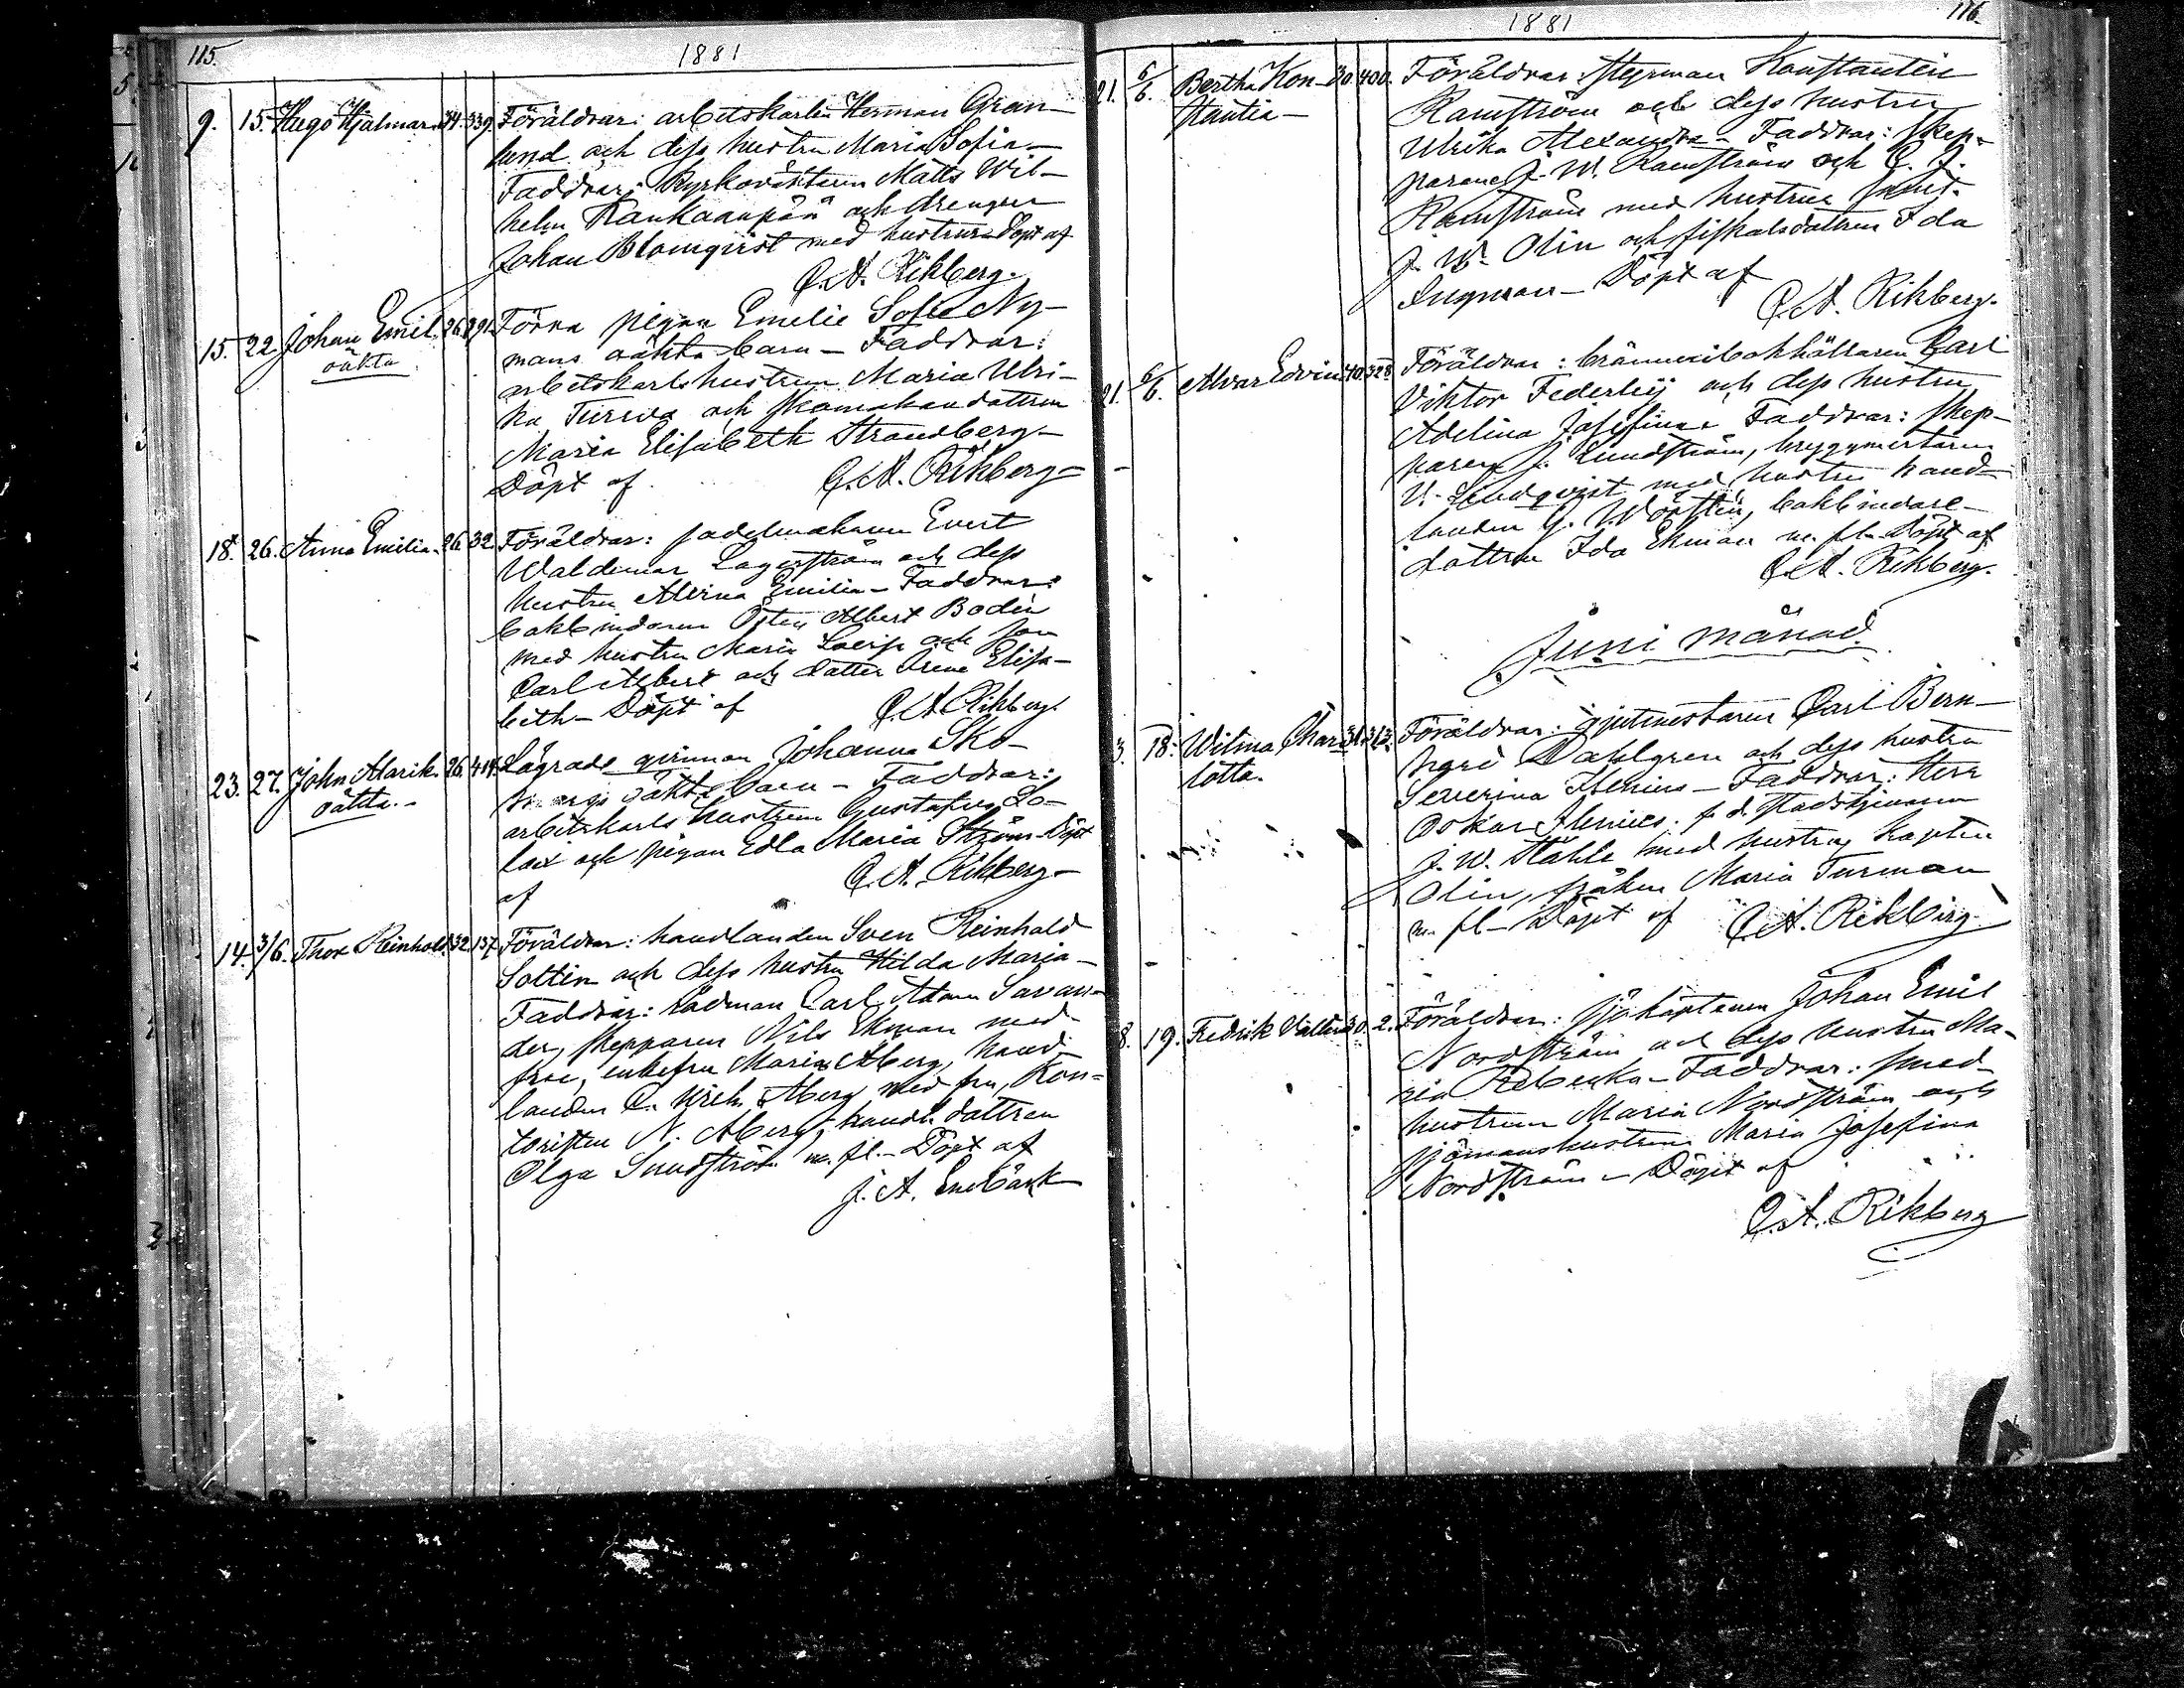 115.
1881
9. 15. Hugo Hjalmar. 34. 339. Föräldrar: arbetskarlen Herman Gran-
lund och dess hustru Maria Sofia-
Faddrar: Kyrkoväktaren Matts Wil-
helm Kankaanpää och drengen
Johan Blomqvist med hustrur- Döpt af
C. A. Rikberg.
15. 22. Johan Emil. 26. 291. Förra pigan Emelie Sofie Ny-
oäkta
mans oäkta barn - Faddrar:
arbetskarlshustrun Maria Ulri-
ka och skomakaredottren
Maria Elisabeth Strandberg-
Döpt af C. A. Rikberg-
18. 26. Anna Emilia. 26. 32. Föräldrar: sadelmakaren Evert
Waldemar Lagerström och dess
hustru Emilia- Faddrar:
bokbindaren Albert Bodén
med hustru Maria Lovisa och son
Carl Albert och dotter Irene Elisa-
beth- Döpt af C. A. Rikberg.
23. 27. John Alarik. 26. Lägrade qvinnan Johanna Sko-
oäkta.-
oäkta barn - Faddrar:
arbetskarls hustrun Gustafva So-
lax och pigan Edla Maria Ström- Döpt
af C. A. Rikberg-
14. 3/6. Thor Reinhold. 32. 137. Föräldrar: handlanden Sven Reinhold
Soltin och dess hustru Hilda Maria-
Faddrar: rådman Carl Adam Savan-
der, skepparen Nils Ekman med
fru, enkefru Maria Åberg, hand-
landen C. Wilh. Åberg med fru, Kon-
toristen N. Åberg, handl. dottren
Olga Sundström m. fl.- Döpt af
J. A. Enebäck
1881
116.
21. 6/6. Bertha Kon- 30. 400. Föräldrar: styrman Konstantin
stantia-
Ramström och dess hustru
Ulrika Alexandra- Faddrar: skep-
parene J. W. Ramström och C. J.
Ramström med hustrur
J. W. Olin och fiskalsdottren Ida
Ingman- Döpt af
C. A. Rikberg.
21. 6/6. Alvar Edvin. 40. 328. Föräldrar: bränneribokhållaren Carl
Viktor Federley och dess hustru
Adelina Josefina- Faddrar: skep-
paren J. Lundström, byggmästaren
V. Lindqvist med hustru hand-
landen G. bokbindare-
dottren Ida Ekman m. fl.- Döpt af
C. A. Rikberg.
Juni månad.
3. 18. Wilma Char- 31. 313. Föräldrar: gjutmästaren Carl Bern-
lotta.
hard Dahlgren och dess hustru
Severina Alenius- Faddrar: Herr
Oskar Alenius. f. d. stadstjenaren
J. W. Ståhle med hustru, kapten
Olin, fröken Maria Turman
m. fl- Döpt af C. A. Rikberg.
8. 19. Fredrik Valter 30. 2. Föräldrar: sjökaptenen Johan Emil
Nordström och dess hustru Ma-
ria Rebecka- Faddrar: smed-
hustrun Maria Nordström och
sjömanshustrun Maria Josefina
Nordström- Döpt af
C. A. Rikberg